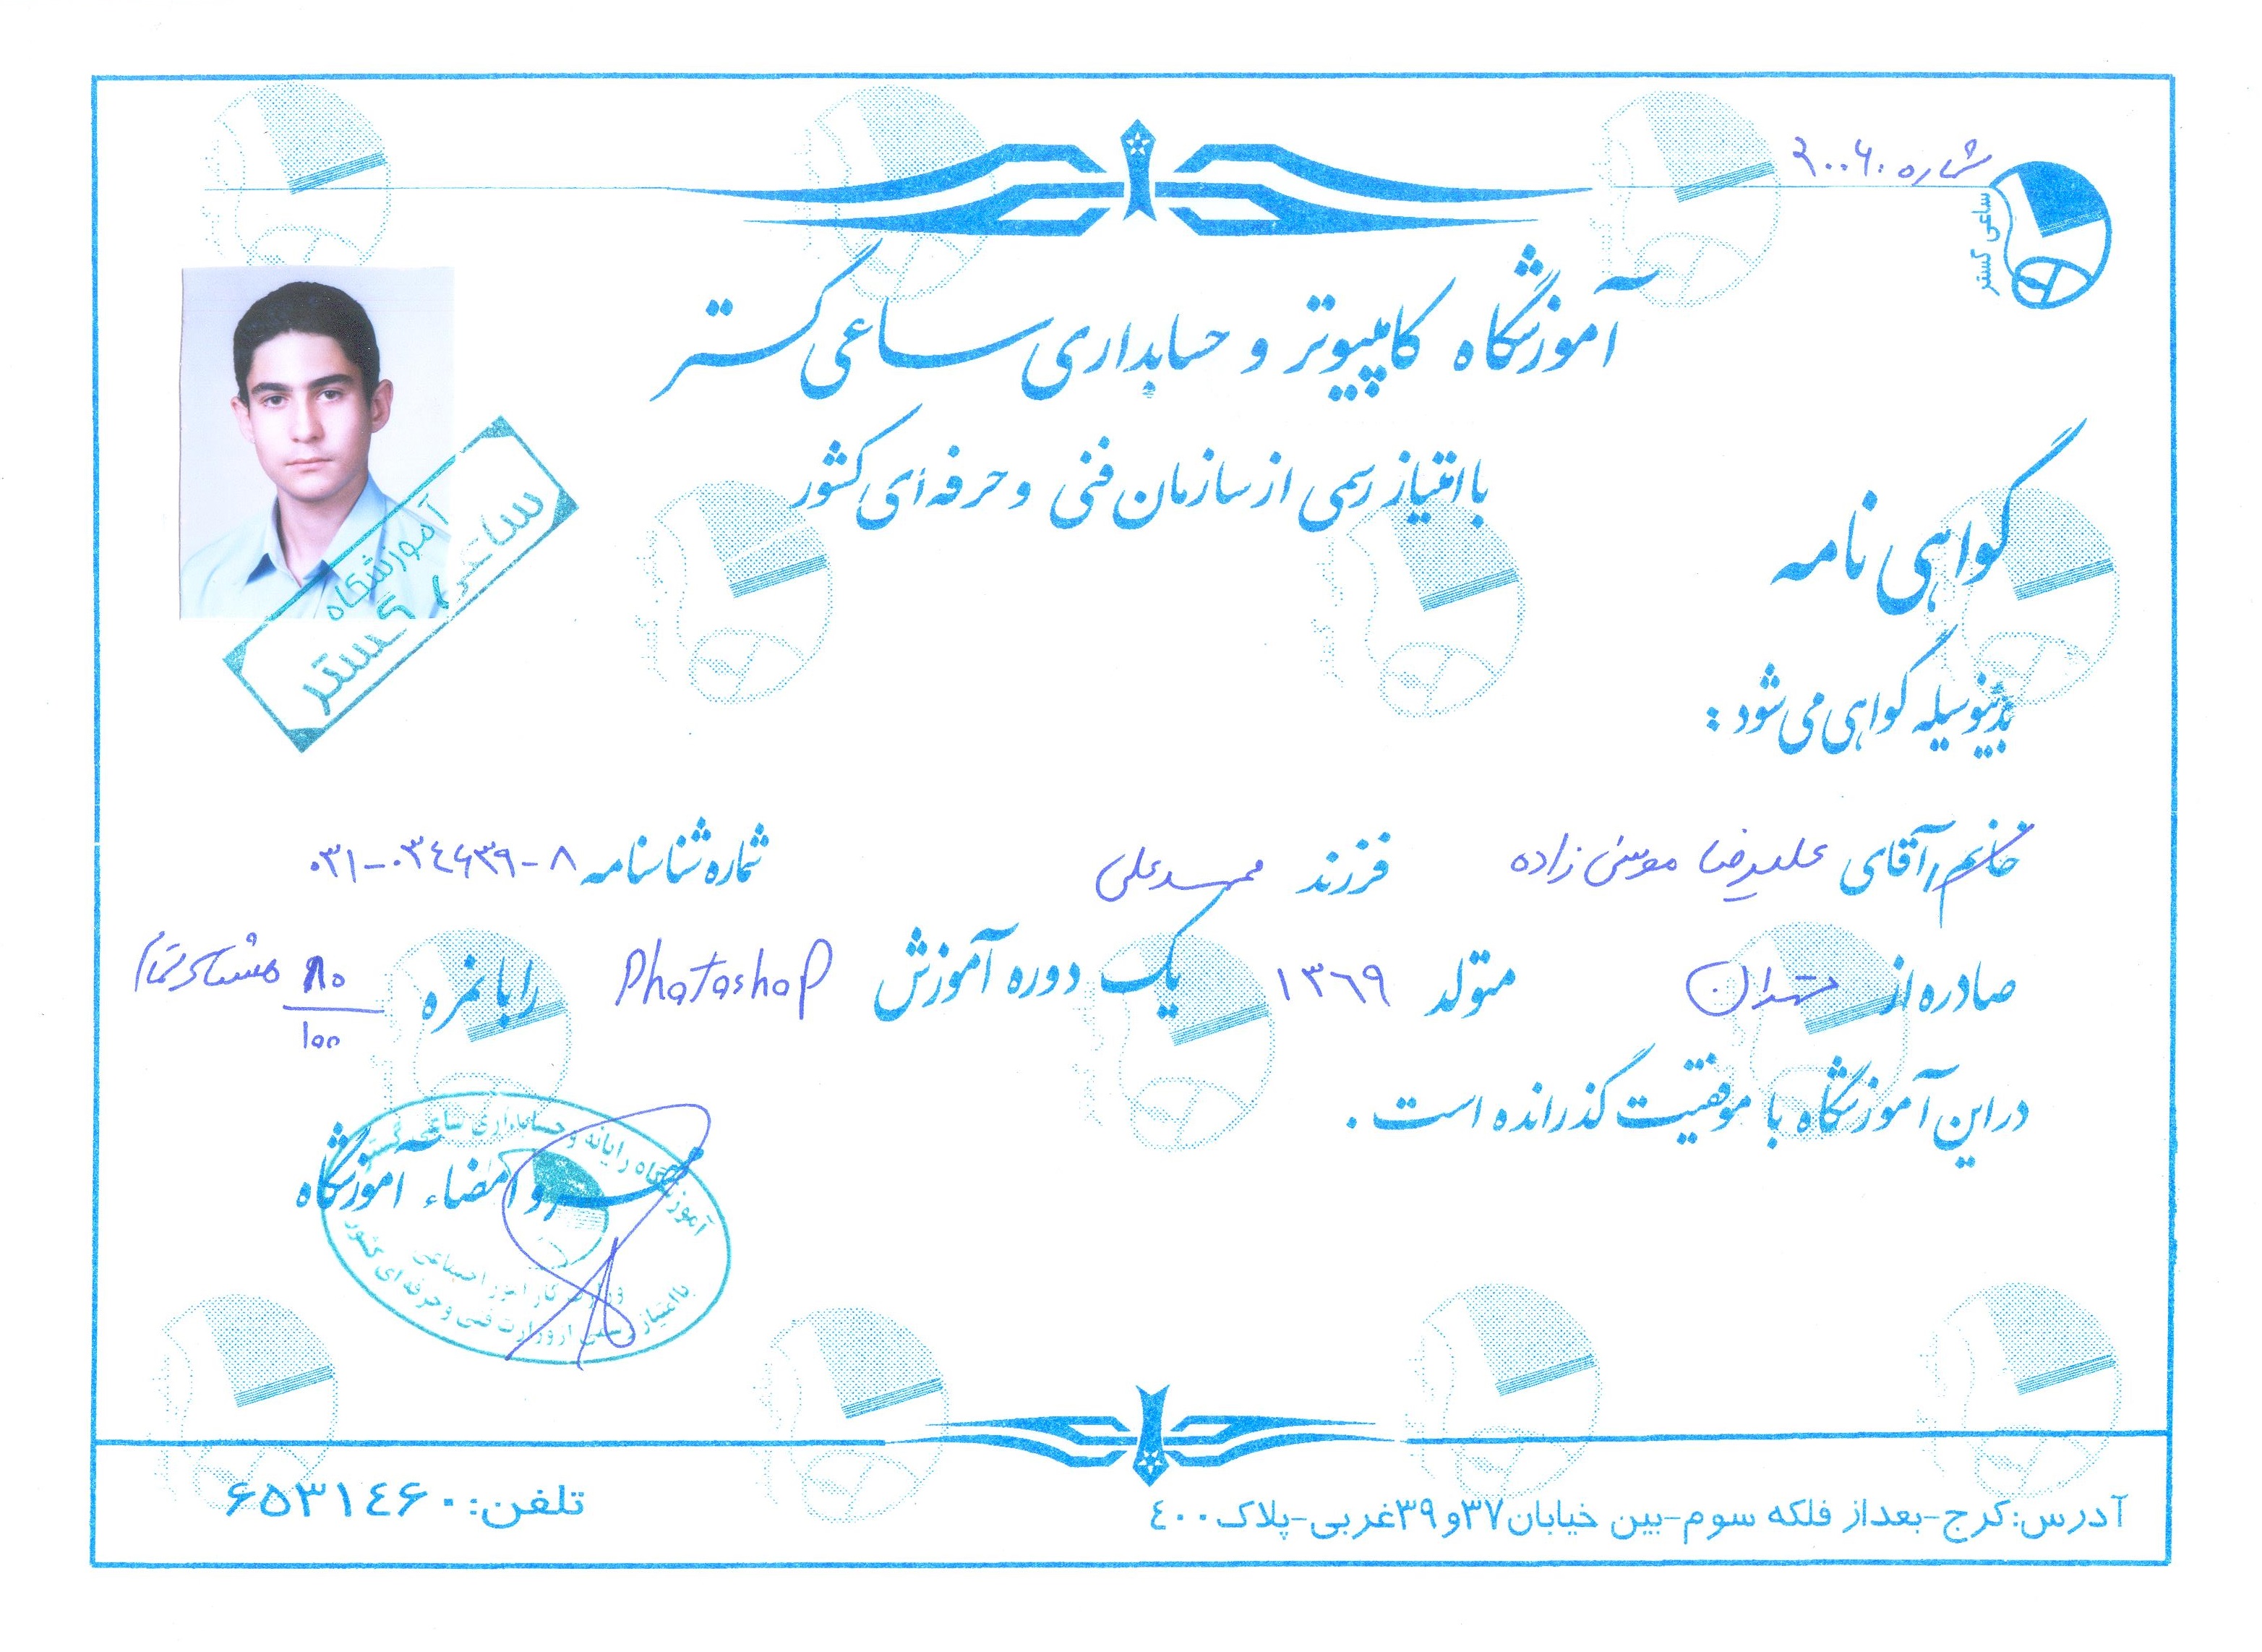 شماره ۲۰۰۶۰
ساعی گستر
آموزشگاه کامپیوتر و حسابداری ساعی گستر
با امتیاز رسمی از سازمان فنی و حرفه ای کشور
گواهی نامه
آموزشگاه
ساعی گستر
بدینوسیله گواهی می شود :
خانم/آقای علیرضا موسی زاده فرزند محمدعلی شماره شناسنامه ۰۳۱-۰۳٤۶۳۹-۸
صادره از تهران متولد ۱۳٦۹ یک دوره آموزش Photoshop را با نمره ۸۰/۱۰۰ هشتاد تمام
در این آموزشگاه با موفقیت گذرانده است .
مهر و امضاء آموزشگاه
آموزشگاه رایانه و حسابداری ساعی گستر
وزارت کار امور اجتماعی
با امتیاز رسمی از وزارت فنی و حرفه ای کشور
آدرس:کرج-بعداز فلکه سوم-بین خیابان۳۷و۳۹غربی-پلاک٤۰۰
تلفن:۶۵۳۱٤۶۰